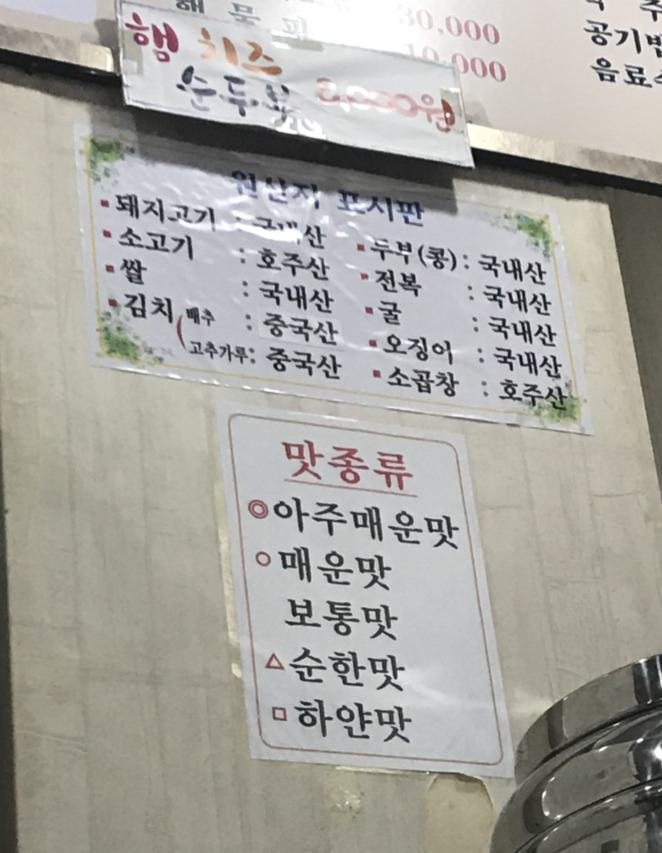 해물파 30,000
10,000
공기밥
음료수
햄 치즈
순두부 8,000원
원산지 표시판
▪돼지고기 : 국내산 ▪두부(콩) : 국내산
▪소고기 : 호주산 ▪전복 : 국내산
▪쌀 : 국내산 ▪굴 : 국내산
▪김치(배추 : 중국산 ▪오징어 : 국내산
고추가루: 중국산 ▪소곱창 : 호주산
맛종류
◎아주매운맛
○매운맛
보통맛
△순한맛
□하얀맛